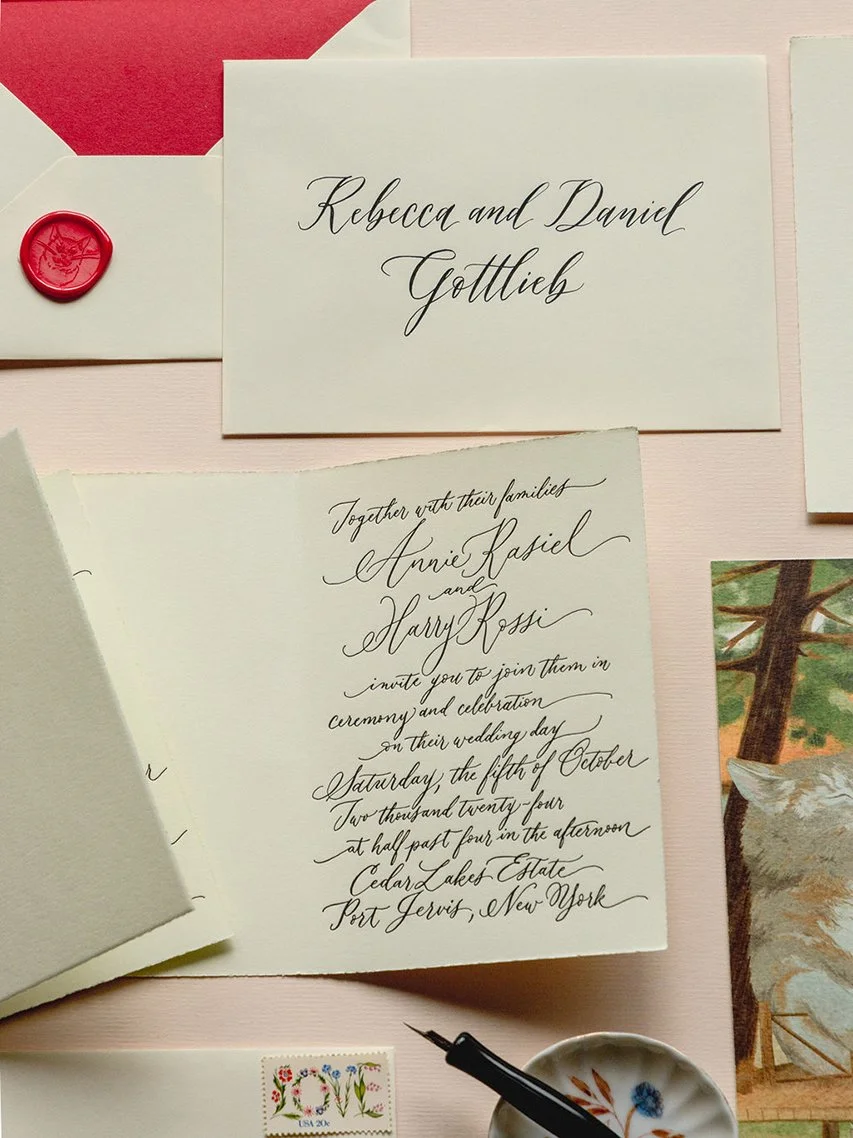 Rebecca and Daniel
Gottlieb
Together with their families
Annie Rasiel
and
Harry Rossi
invite you to join them in
ceremony and celebration
on their wedding day
Saturday, the fifth of October
Two thousand twenty-four
at half past four in the afternoon
Cedar Lakes Estate
Port Jervis, New York
LOVE
USA 20c